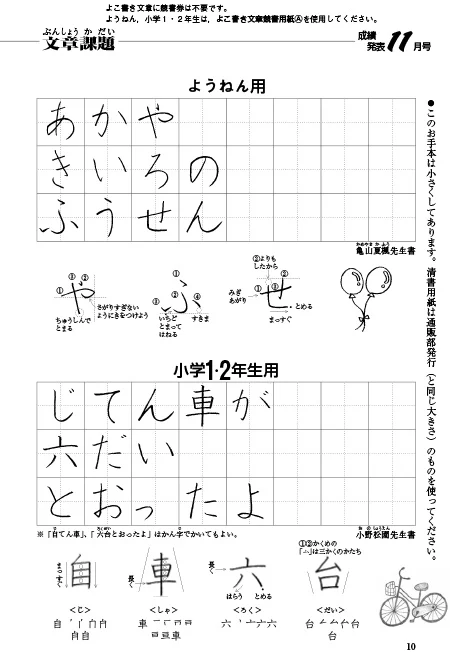 よこ書き文章に競書券は不要です。
ようねん，小学1・2年生は，よこ書き文章競書用紙Ⓐを使用してください。
ぶんしょう か だい
文章課題
成績
発表 11月号
ようねん用
あかや
きいろの
ふうせん
かめやま か ふう
亀山夏楓先生書
●このお手本は小さくしてあります。清書用紙は通販部発行（と同じ大きさ）のものを使ってください。
① ② ③
や
ちゅうしんで
とまる
さがりすぎない
ようにきをつけよう
① ② ③ ④
ふ
いちど
とまって
はねる
すきま
②よりも
したから
① ② ③
せ
みぎ
あがり
とめる
まっすぐ
小学1・2年生用
じてん車が
六だい
とおったよ
※「自てん車」、「六台とおったよ」はかん字でかいてもよい。
お の しょうえん
小野松園先生書
まっすぐ
自
＜じ＞
長く
車
＜しゃ＞
長く
六
はらう とめる
＜ろく＞
①②かくめの
「ム」は三かくのかたち
台
＜だい＞
10